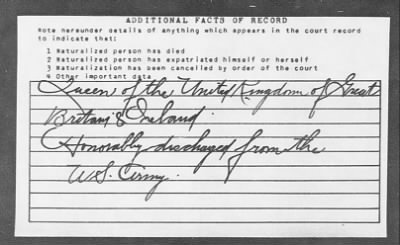 ADDITIONAL FACTS OF RECORD
Note hereunder details of anything which appears in the court record
to indicate that:
1 Naturalized person has died
2 Naturalized person has expatriated himself or herself
3 Naturalization has been cancelled by order of the court
4 Other important data
Queen of the United Kingdom of Great
Britain & Ireland.
Honorably discharged from the
U.S. Army.